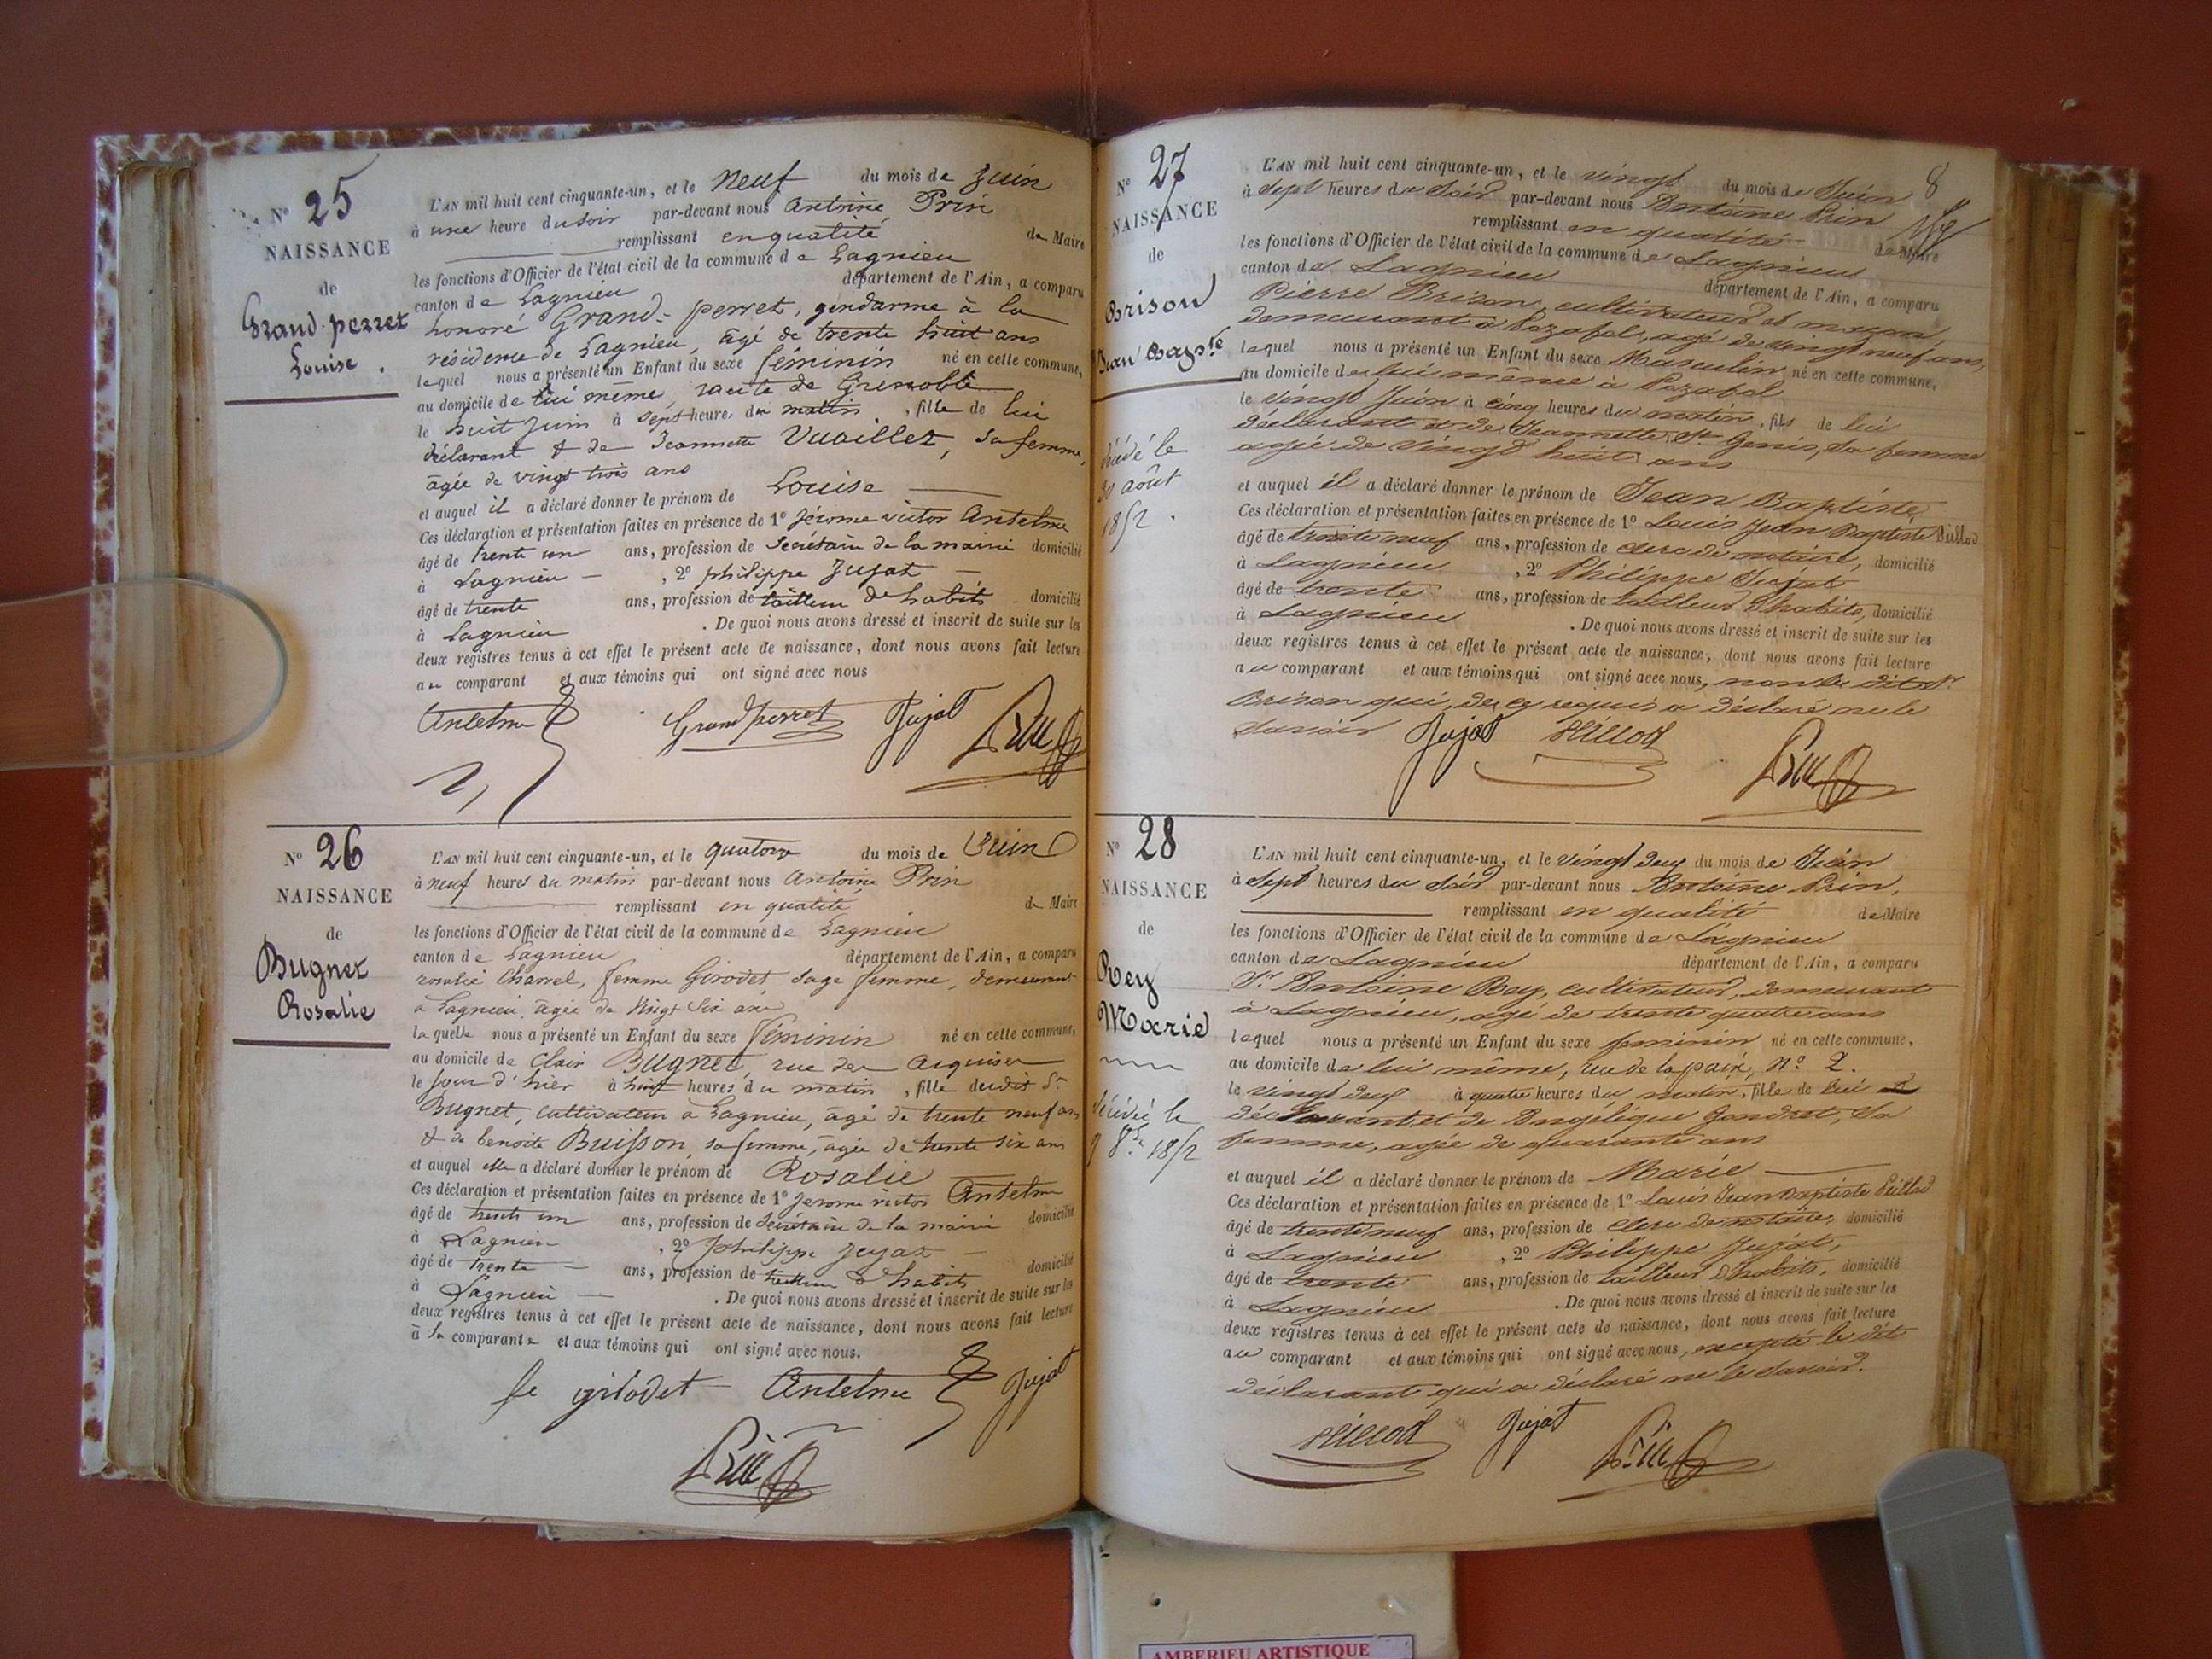 N° 25
NAISSANCE
de
Grand-perret
Louise.
L'AN mil huit cent cinquante-un, et le neuf du mois de Juin
à une heure du soir par-devant nous Antoine Prin
remplissant en qualité de Maire
les fonctions d'Officier de l'état civil de la commune de Lagnieu
canton de Lagnieu département de l'Ain, a comparu
honoré Grand-perret, gendarme à la
résidence de Lagnieu, âgé de trente huit ans
lequel nous a présenté un Enfant du sexe féminin né en cette commune,
au domicile de lui même, route de Grenoble
le huit juin à sept heures du matin, fille de lui
déclarant & de Jeannette Vuaillet, sa femme,
âgée de vingt trois ans
et auquel il a déclaré donner le prénom de Louise
Ces déclaration et présentation faites en présence de 1° Jérome victor Anselme
âgé de trente un ans, profession de Secrétaire de la mairie domicilié
à Lagnieu, 2° philippe Jujat
âgé de trente ans, profession de tailleur d'habits domicilié
à Lagnieu. De quoi nous avons dressé et inscrit de suite sur les
deux registres tenus à cet effet le présent acte de naissance, dont nous avons fait lecture
au comparant et aux témoins qui ont signé avec nous
Anselme Grandperret Jujat Prin
N° 26
NAISSANCE
de
Bugnet
Rosalie
L'AN mil huit cent cinquante-un, et le quatorze du mois de Juin
à neuf heures du matin par-devant nous Antoine Prin
remplissant en qualité de Maire
les fonctions d'Officier de l'état civil de la commune de Lagnieu
canton de Lagnieu département de l'Ain, a comparu
rosalie Charvel, femme Girodet, sage femme, demeurant
à Lagnieu, âgée de vingt six ans
laquelle nous a présenté un Enfant du sexe féminin né en cette commune,
au domicile de Clair Bugnet, rue des
le jour d'hier à heures du matin, fille dudit Sr
Bugnet, cultivateur à Lagnieu, âgé de trente neuf ans
& de benoite Buisson, sa femme, âgée de trente six ans
et auquel elle a déclaré donner le prénom de Rosalie
Ces déclaration et présentation faites en présence de 1° Jerome victor Anselme
âgé de trente un ans, profession de Secrétaire de la mairie domicilié
à Lagnieu, 2° philippe Jujat
âgé de trente ans, profession de tailleur d'habits domicilié
à Lagnieu. De quoi nous avons dressé et inscrit de suite sur les
deux registres tenus à cet effet le présent acte de naissance, dont nous avons fait lecture
à la comparante et aux témoins qui ont signé avec nous.
fe girodet Anselme Jujat
Prin
8
N° 27
NAISSANCE
de
Brison
Jean Bapte
décédé le
août
1852.
L'AN mil huit cent cinquante-un, et le vingt du mois de Juin
à sept heures du soir par-devant nous Antoine Prin
remplissant en qualité de Maire
les fonctions d'Officier de l'état civil de la commune de Lagnieu
canton de Lagnieu département de l'Ain, a comparu
Pierre Brison, cultivateur et maçon,
demeurant à Pozafol, agé de vingt neuf ans,
lequel nous a présenté un Enfant du sexe Masculin né en cette commune,
au domicile de lui même à Pozafol
le vingt Juin à cinq heures du matin, fils de lui
déclarant et de Jeannette St Genis, sa femme
agée de vingt huit ans
et auquel il a déclaré donner le prénom de Jean Baptiste
Ces déclaration et présentation faites en présence de 1° Louis Jean Baptiste
âgé de trente neuf ans, profession de clerc de notaire, domicilié
à Lagnieu, 2° Philippe Jujat
âgé de trente ans, profession de tailleur d'habits, domicilié
à Lagnieu. De quoi nous avons dressé et inscrit de suite sur les
deux registres tenus à cet effet le présent acte de naissance, dont nous avons fait lecture
au comparant et aux témoins qui ont signé avec nous, non le dit Sr
Brison qui, de ce requis a déclaré ne le
savoir Jujat Prin
N° 28
NAISSANCE
de
Rey
Marie
Décédée le
9 8bre 1852
L'AN mil huit cent cinquante-un, et le vingt deux du mois de Juin
à sept heures du soir par-devant nous Antoine Prin,
remplissant en qualité de Maire
les fonctions d'Officier de l'état civil de la commune de Lagnieu
canton de Lagnieu département de l'Ain, a comparu
Sr Antoine Rey, cultivateur, demeurant
à Lagnieu, agé de trente quatre ans
lequel nous a présenté un Enfant du sexe feminin né en cette commune,
au domicile de lui même, rue de la paix, N° 2.
le vingt deux à quatre heures du matin, fille de lui
déclarant, et de Angélique Gondret, sa
femme, agée de quarante ans
et auquel il a déclaré donner le prénom de Marie
Ces déclaration et présentation faites en présence de 1° Louis Jean Baptiste
âgé de trente neuf ans, profession de clerc de notaire, domicilié
à Lagnieu, 2° Philippe Jujat,
âgé de trente ans, profession de tailleur d'habits, domicilié
à Lagnieu. De quoi nous avons dressé et inscrit de suite sur les
deux registres tenus à cet effet le présent acte de naissance, dont nous avons fait lecture
au comparant et aux témoins qui ont signé avec nous, excepté le dit
déclarant qui a déclaré ne le savoir.
Jujat Prin
AMBERIEU ARTISTIQUE